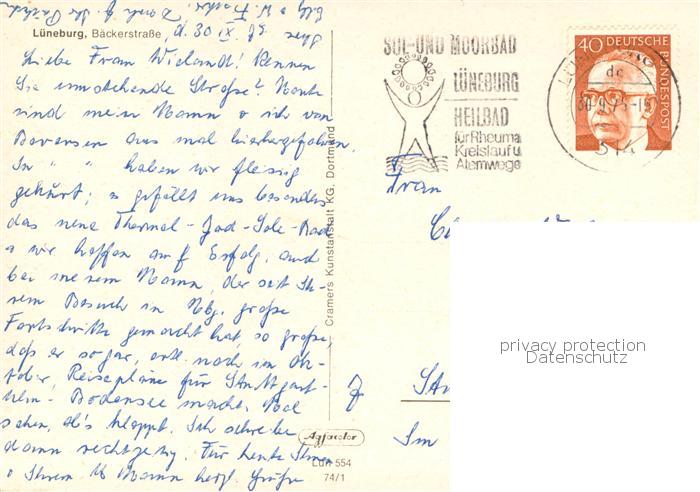 Lüneburg, Bäckerstraße, d. 30. IX.
Liebe Frau Wielandt! Kennen
Sie umstehende Straße? Heute
sind mein Mann u. ich von
Bevensen aus mal hierhergefahren.
In " " haben wir fleißig
gekurt; es gefällt uns besonders
das neue Thermal-Jod-Sole-Bad
u. wir hoffen auf Erfolg, auch
bei meinem Mann, der seit Ih-
rem Besuch in Hbg. große
Fortschritte gemacht hat, so große,
daß er sogar, evtl. noch im Ok-
tober, Reisepläne für Stuttgart-
Bodensee macht. Mal
sehen, ob's klappt. Ich schreibe
dann rechtzeitig. Für heute Ihnen
u. Ihrem Mann herzl. Grüße
Cramers Kunstanstalt KG, Dortmund
SOL- UND MOORBAD
LÜNEBURG
HEILBAD
für Rheuma
Kreislauf u.
Atemwege
40 DEUTSCHE
BUNDESPOST
314
Frau
privacy protection
Datenschutz
Agfacolor
Lün 554
74/1